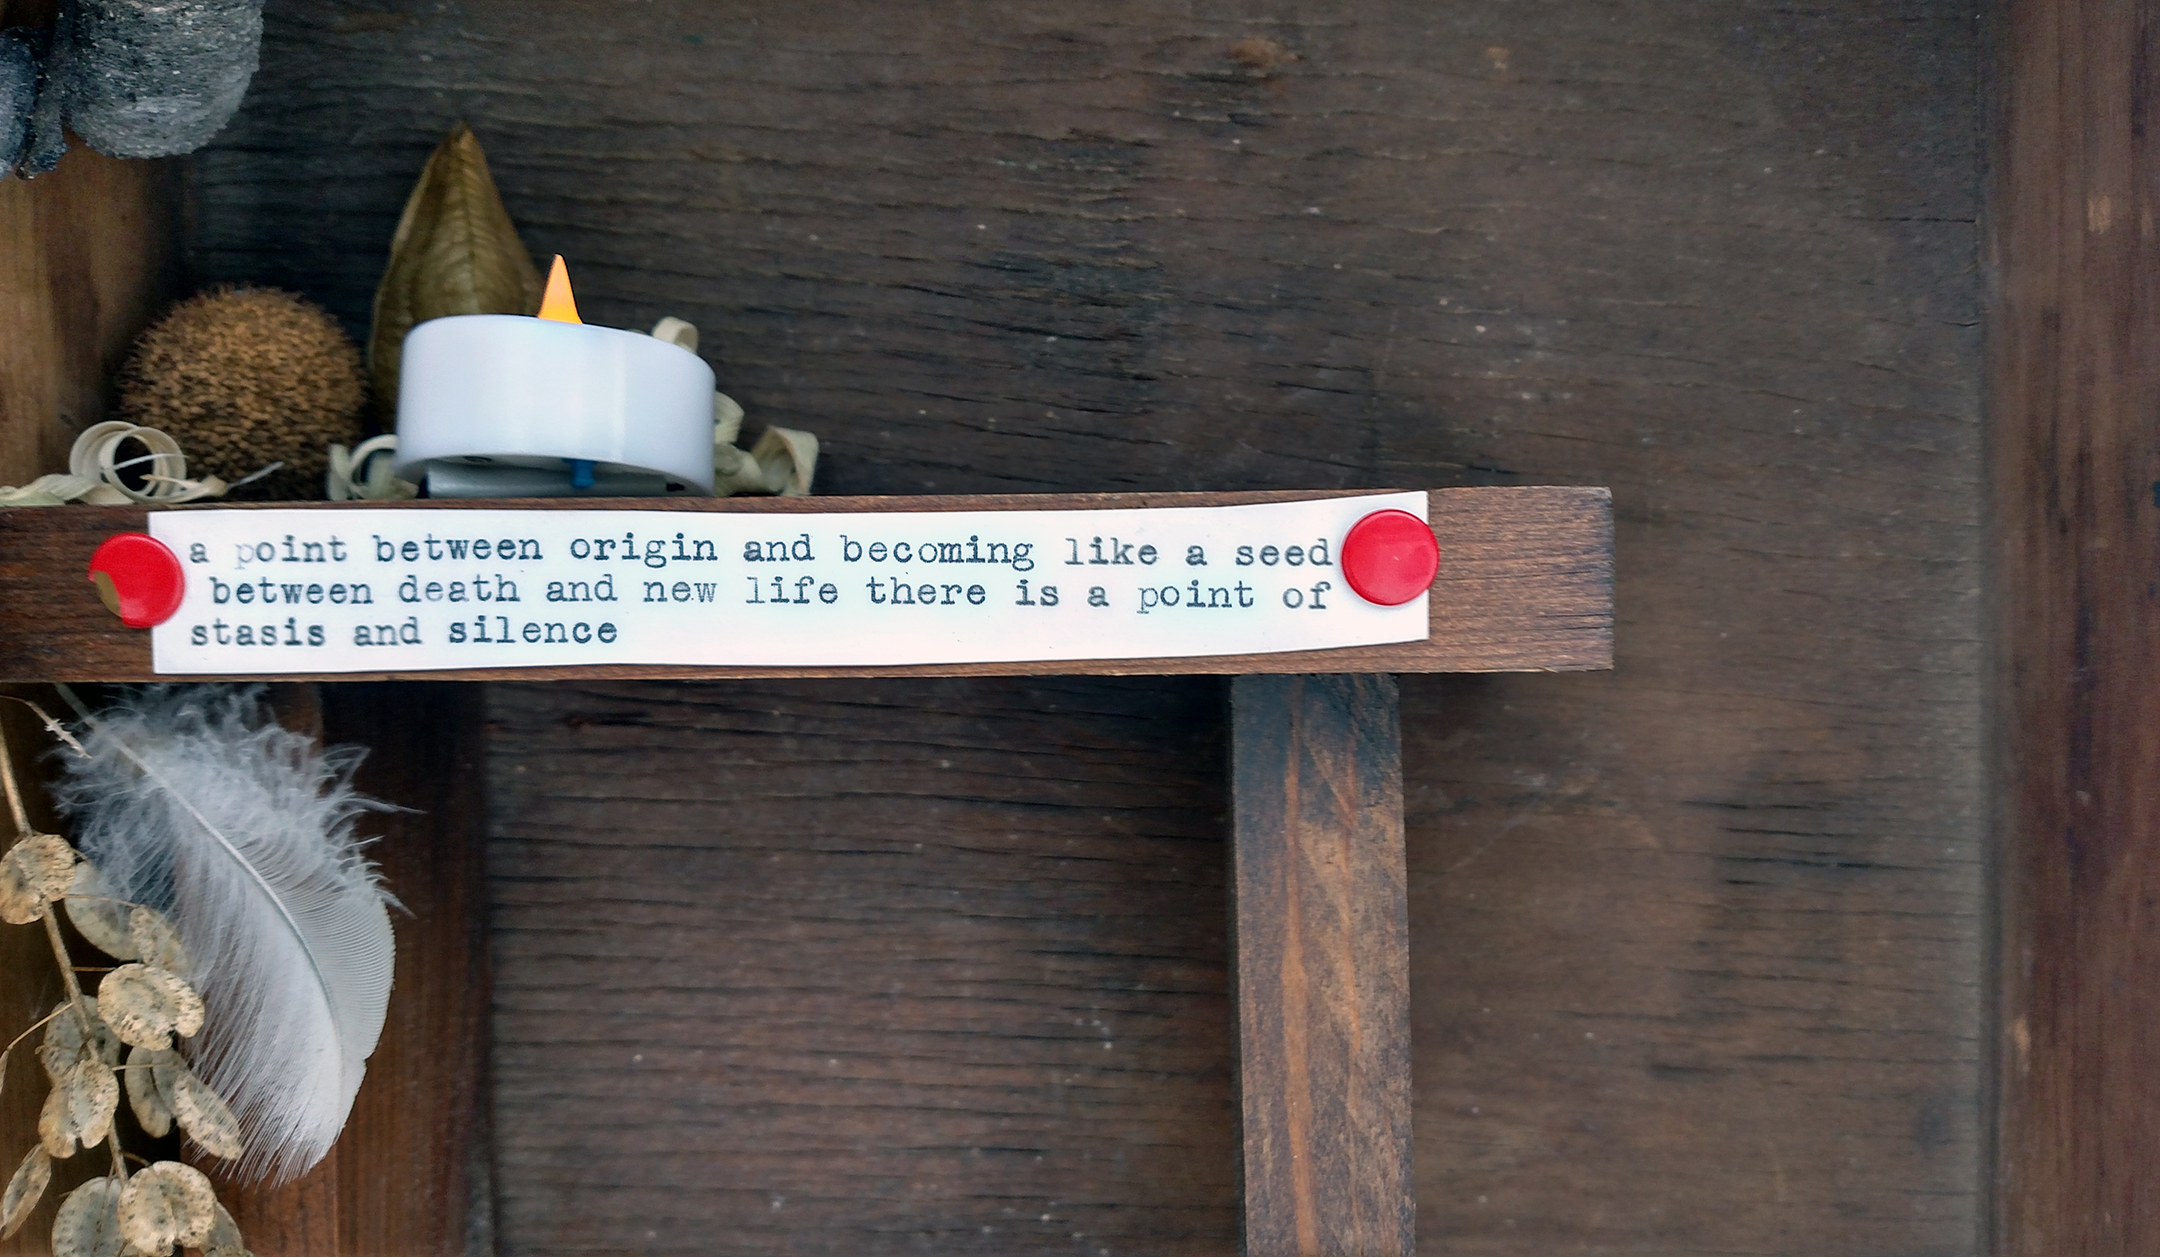 a point between origin and becoming like a seed
between death and new life there is a point of
stasis and silence